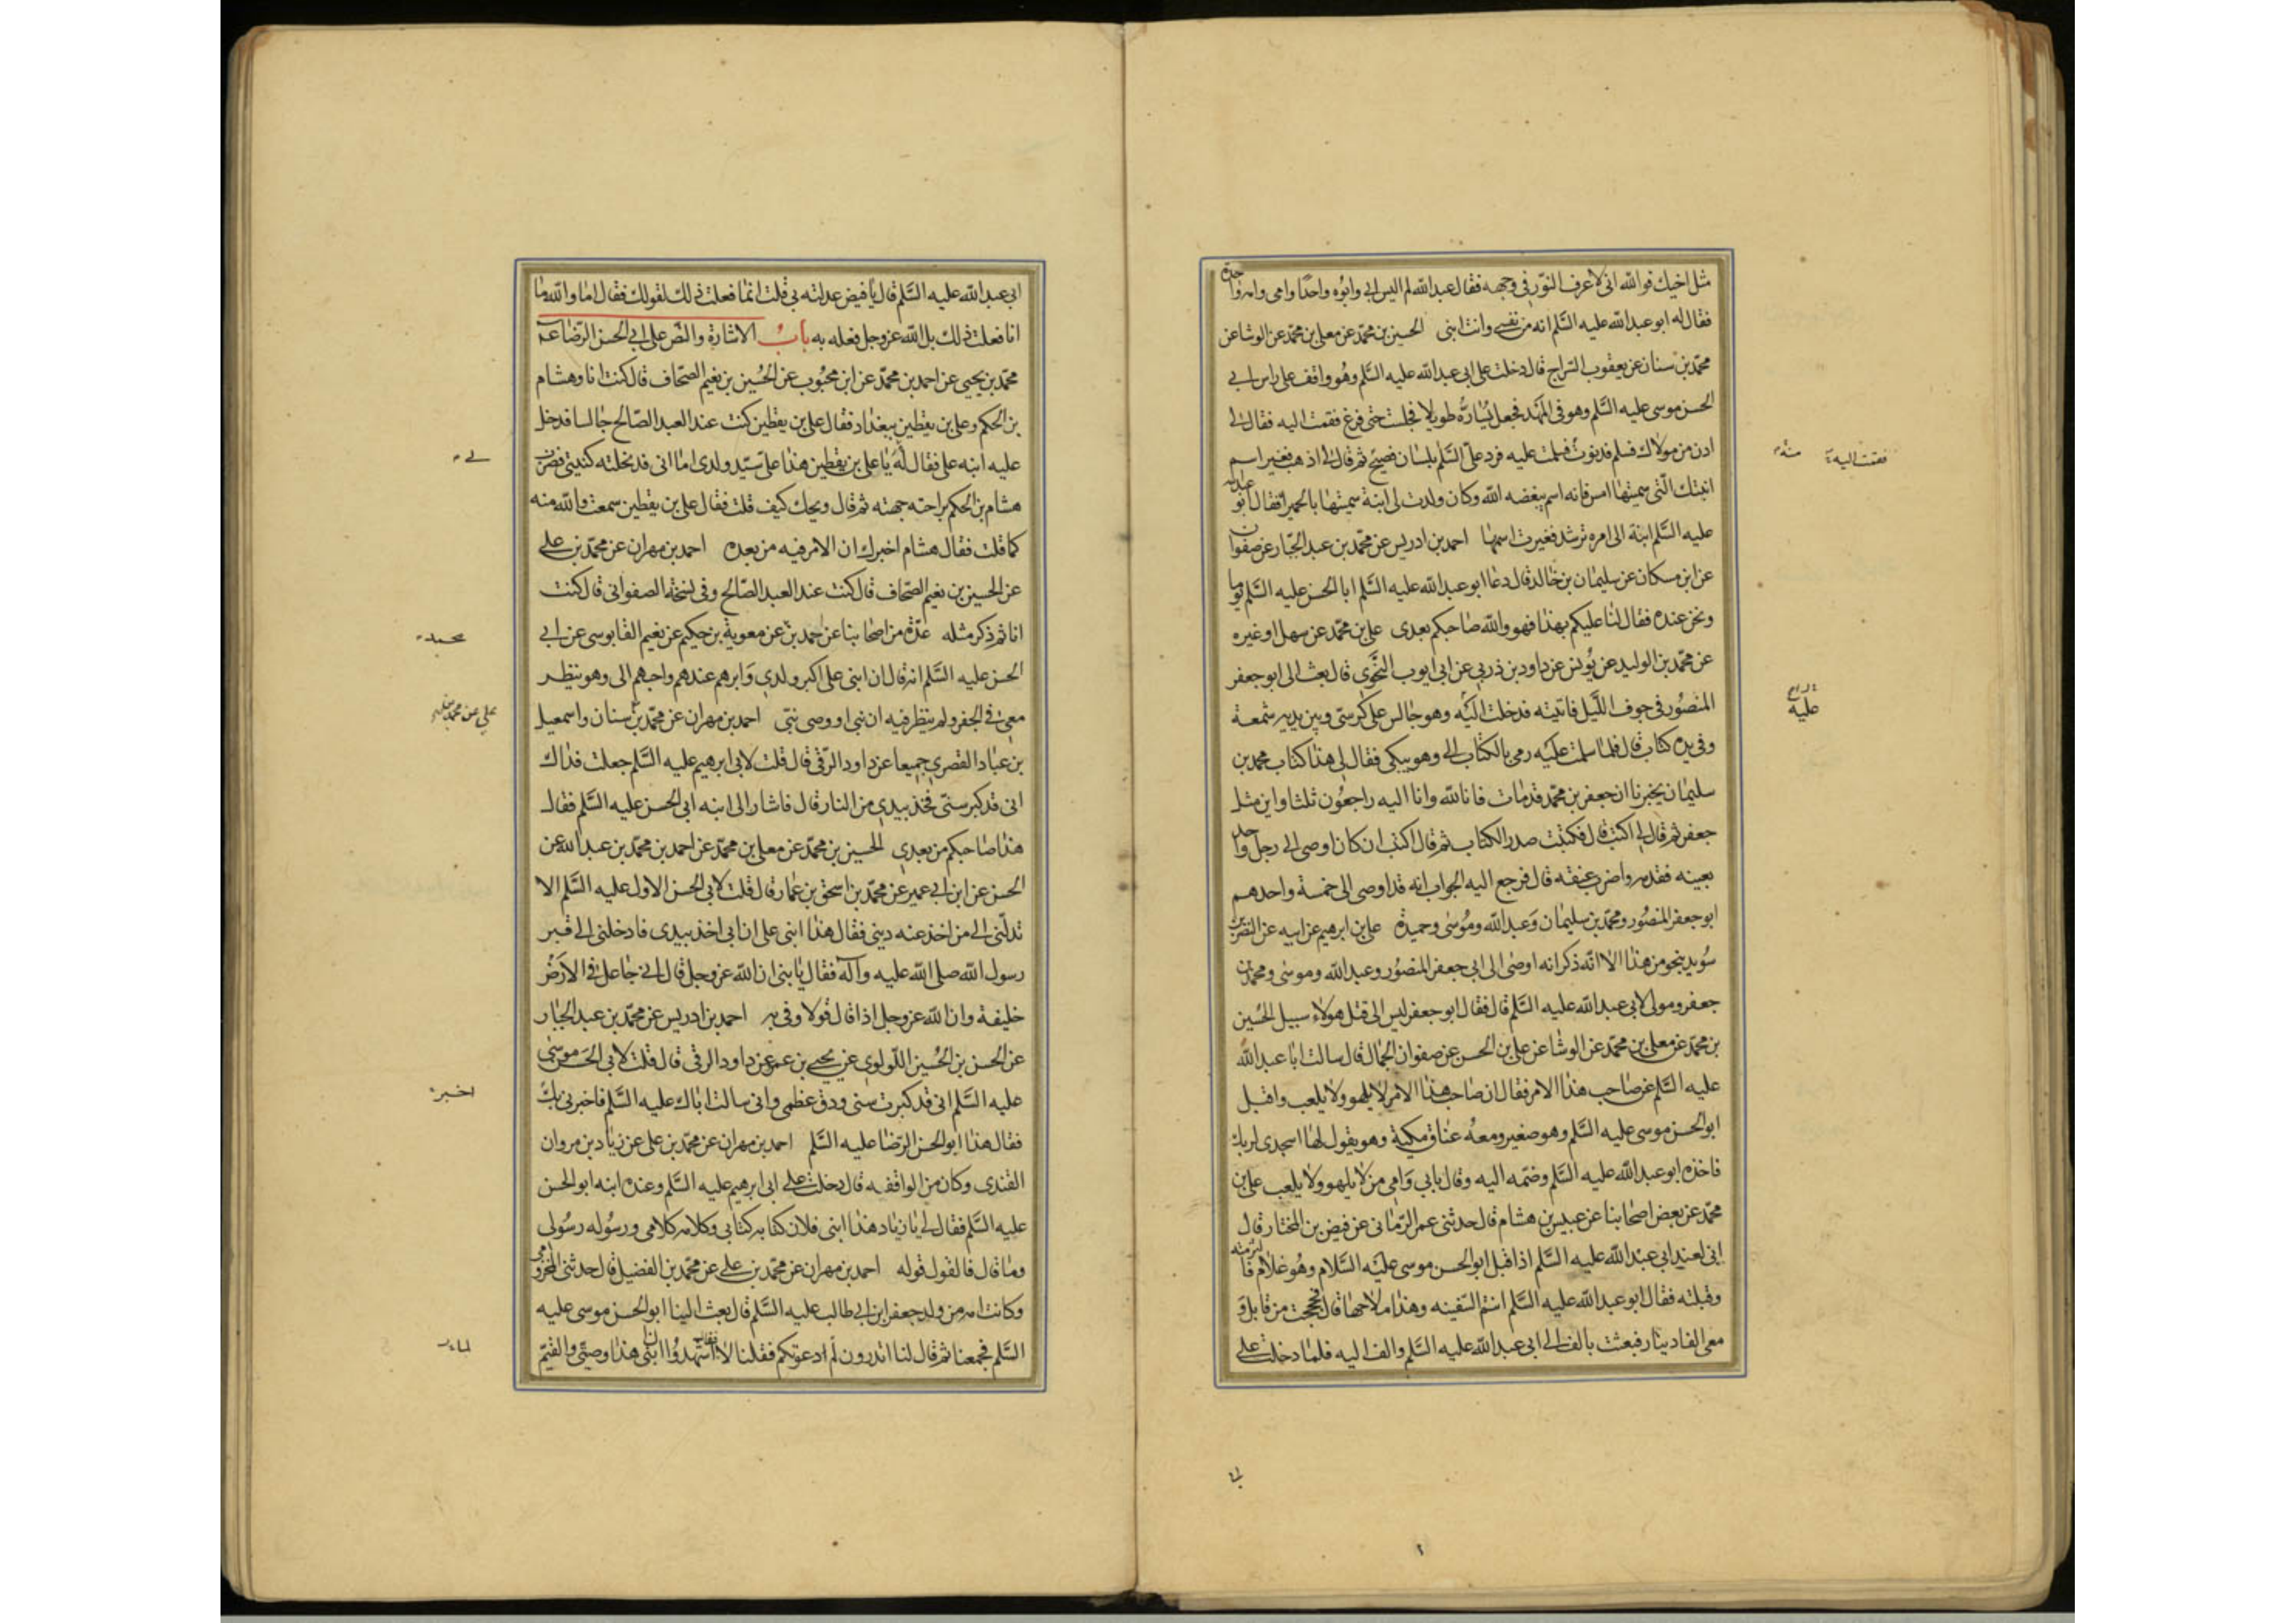 مثل اخيك فوالله انى لاعرف النور فى وجهه فقال عبدالله لم اليس ابى وابوه واحدا وامى وامه واحدة
فقال له ابو عبدالله عليه السلم انه من نفسى وانت ابنى الحسين بن محمد عن معلى بن محمد عن الوشا عن
محمد بن سنان عن يعقوب السراج قال دخلت على ابى عبدالله عليه السلم وهو واقف على راس ابى
الحسن موسى عليه السلم وهو فى المهد فجعل يساره طويلا فجلست حتى فرغ فقمت اليه فقال لى
ادن من مولاك فسلم فدنوت فسلمت عليه فرد على السلم بلسان فصيح ثم قال لى اذهب فغير اسم
فقمت اليه
منه
ابنتك التى سميتها امس فانه اسم يبغضه الله وكان ولدت لى ابنة سميتها بالحميرا فقال ابو عبدالله
عليه السلم ابنة الى امره ترشد فغيرت اسمها احمد بن ادريس عن محمد بن عبد الجبار عن صفوان
عن ابن مسكان عن سليمان بن خالد قال دعا ابو عبدالله عليه السلم ابا الحسن عليه السلم يوما
ونحن عنده فقال لنا عليكم بهذا فهو والله صاحبكم بعدى على بن محمد عن سهل او غيره
عن محمد بن الوليد عن يونس عن داود بن زربى عن ابى ايوب النحوى قال بعث الى ابو جعفر
المنصور فى جوف الليل فاتيته فدخلت اليه وهو جالس على كرسى وبين يديه شمعة
عليه
وفى يده كتاب قال فلما سلمت عليه رمى بالكتاب الى وهو يبكى فقال لى هذا كتاب محمد بن
سليمان يخبرنا ان جعفر بن محمد قد مات فانالله وانا اليه راجعون ثلثا واين مثل
جعفر ثم قال لى اكتب قال فكتبت صدر الكتاب ثم قال اكتب ان كان اوصى الى رجل واحد
بعينه فقدمه واضرب عنقه قال فرجع اليه الجواب انه قد اوصى الى خمسة واحدهم
ابو جعفر المنصور ومحمد بن سليمان وعبدالله وموسى وحميدة على بن ابرهيم عن ابيه عن النضر بن
سويد بنحو من هذا الا انه ذكر انه اوصى الى ابى جعفر المنصور وعبدالله وموسى ومحمد بن
جعفر ومولى لابى عبدالله عليه السلم قال فقال ابو جعفر ليس الى قتل هولاء سبيل الحسين
بن محمد عن معلى بن محمد عن الوشا عن على بن الحسن عن صفوان الجمال قال سالت ابا عبدالله
عليه السلم عن صاحب هذا الامر فقال ان صاحب هذا الامر لا يلهو ولا يلعب واقبل
ابو الحسن موسى عليه السلم وهو صغير ومعه عناق مكية وهو يقول لها اسجدى لربك
فاخذه ابو عبدالله عليه السلم وضمه اليه وقال بابى وامى من لا يلهو ولا يلعب على بن
محمد عن بعض اصحابنا عن عبيس بن هشام قال حدثنى عمر الرمانى عن فيض بن المختار قال
انى لعند ابى عبدالله عليه السلم اذ اقبل ابو الحسن موسى عليه السلام وهو غلام فالتزمته
وقبلته فقال ابو عبدالله عليه السلم انتم السفينه وهذا ملاحها قال فحججت من قابل و
معى الفا دينار فبعثت بالف الى ابى عبدالله عليه السلم والف اليه فلما دخلت على
ابى عبدالله عليه السلم قال يا فيض عدلته بى قلت انما فعلت ذلك لقولك فقال اما والله ما
انا فعلت ذلك بل الله عز وجل فعله به باب الاشارة والنص على ابى الحسن الرضا عم
محمد بن يحيى عن احمد بن محمد عن ابن محبوب عن الحسين بن نعيم الصحاف قال كنت انا وهشام
بن الحكم وعلى بن يقطين ببغداد فقال على بن يقطين كنت عند العبد الصالح جالسا فدخل
عليه ابنه على فقال له يا على بن يقطين هذا على سيد ولدى اما انى قد نحلته كنيتى فضرب
لى
هشام بن الحكم براحته جبهته ثم قال ويحك كيف قلت فقال على بن يقطين سمعت والله منه
كما قلت فقال هشام اخبرك ان الامر فيه من بعده احمد بن مهران عن محمد بن على
عن الحسين بن نعيم الصحاف قال كنت عند العبد الصالح وفى نسخة الصفوانى قال كنت
انا ثم ذكر مثله عدة من اصحابنا عن احمد بن عن معوية بن حكيم عن نعيم القابوسى عن ابى
محمد
الحسن عليه السلم انه قال ان ابنى على اكبر ولدى وابرهم عندهم واحبهم الى وهو ينظر
معى فى الجفر ولم ينظر فيه الا نبى او وصى نبى احمد بن مهران عن محمد بن سنان واسمعيل
على عن محمد
بن عباد القصرى جميعا عن داود الرقى قال قلت لابى ابرهيم عليه السلم جعلت فداك
انى قد كبر سنى فخذ بيدى من النار قال فاشار الى ابنه ابى الحسن عليه السلم فقال
هذا صاحبكم من بعدى الحسين بن محمد عن معلى بن محمد عن احمد بن محمد بن عبدالله عن
الحسن عن ابن ابى عمير عن محمد بن اسحق بن عمار قال قلت لابى الحسن الاول عليه السلم الا
تدلنى الى من اخذ عنه دينى فقال هذا ابنى على ان ابى اخذ بيدى فادخلنى الى قبر
رسول الله صلى الله عليه وآله فقال يا بنى ان الله عز وجل قال انى جاعل فى الارض
خليفة وان الله عز وجل اذا قال قولا وفى به احمد بن ادريس عن محمد بن عبد الجبار
عن الحسن بن الحسين اللولوى عن يحيى بن عمر عن داود الرقى قال قلت لابى الحسن موسى
عليه السلم انى قد كبرت سنى ودق عظمى وانى سالت اباك عليه السلم فاخبرنى بك
اخبر
فقال هذا ابو الحسن الرضا عليه السلم احمد بن مهران عن محمد بن على عن زياد بن مروان
القندى وكان من الواقفه قال دخلت على ابى ابرهيم عليه السلم وعنده ابنه ابو الحسن
عليه السلم فقال لى يا زياد هذا ابنى فلان كتابه كتابى وكلامه كلامى ورسوله رسولى
وما قال فالقول قوله احمد بن مهران عن محمد بن على عن محمد بن الفضيل قال حدثنى المخزومى
وكانت امه من ولد جعفر ابن ابى طالب عليه السلم قال بعث الينا ابو الحسن موسى عليه
السلم فجمعنا ثم قال لنا اتدرون لم ادعوتكم فقلنا لا فقال اشهدوا ان ابنى هذا وصيى والقيم